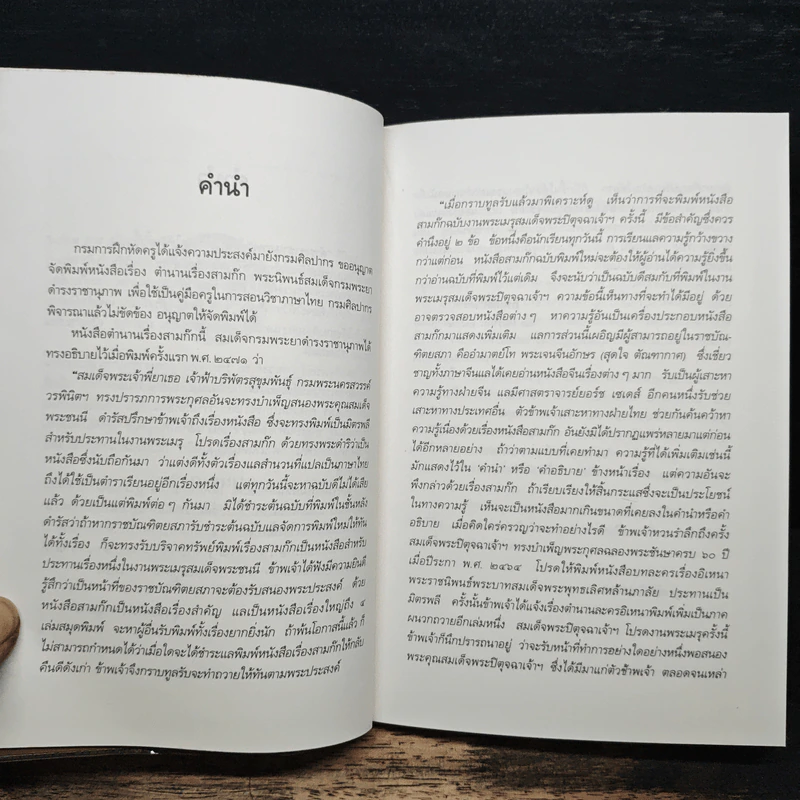 คำนำ
กรมการฝึกหัดครูได้แจ้งความประสงค์มายังกรมศิลปากร ขออนุญาต
จัดพิมพ์หนังสือเรื่อง ตำนานเรื่องสามก๊ก พระนิพนธ์สมเด็จกรมพระยา
ดำรงราชานุภาพ เพื่อใช้เป็นคู่มือครูในการสอนวิชาภาษาไทย กรมศิลปากร
พิจารณาแล้วไม่ขัดข้อง อนุญาตให้จัดพิมพ์ได้
หนังสือตำนานเรื่องสามก๊กนี้ สมเด็จกรมพระยาดำรงราชานุภาพได้
ทรงอธิบายไว้เมื่อพิมพ์ครั้งแรก พ.ศ. ๒๔๗๑ ว่า
“สมเด็จพระเจ้าพี่ยาเธอ เจ้าฟ้าบริพัตรสุขุมพันธุ์ กรมพระนครสวรรค์
วรพินิตฯ ทรงปรารภการพระกุศลอันจะทรงบำเพ็ญสนองพระคุณสมเด็จ
พระชนนี ดำรัสปรึกษาข้าพเจ้าถึงเรื่องหนังสือ ซึ่งจะทรงพิมพ์เป็นมิตรพลี
สำหรับประทานในงานพระเมรุ โปรดเรื่องสามก๊ก ด้วยทรงพระดำริว่าเป็น
หนังสือซึ่งนับถือกันมา ว่าแต่งดีทั้งตัวเรื่องแลสำนวนที่แปลเป็นภาษาไทย
ถึงได้ใช้เป็นตำราเรียนอยู่อีกเรื่องหนึ่ง แต่ทุกวันนี้จะหาฉบับดีไม่ได้เสีย
แล้ว ด้วยเป็นแต่พิมพ์ต่อ ๆ กันมา มิได้ชำระต้นฉบับที่พิมพ์ในชั้นหลัง
ดำรัสว่าถ้าหากราชบัณฑิตยสภารับชำระต้นฉบับแลจัดการพิมพ์ใหม่ให้ทัน
ได้ทั้งเรื่อง ก็จะทรงรับบริจาคทรัพย์พิมพ์เรื่องสามก๊กเป็นหนังสือสำหรับ
ประทานเรื่องหนึ่งในงานพระเมรุสมเด็จพระชนนี ข้าพเจ้าได้ฟังมีความยินดี
รู้สึกว่าเป็นหน้าที่ของราชบัณฑิตยสภาจะต้องรับสนองพระประสงค์ ด้วย
หนังสือสามก๊กเป็นหนังสือเรื่องสำคัญ แลเป็นหนังสือเรื่องใหญ่ถึง ๔
เล่มสมุดพิมพ์ จะหาผู้อื่นรับพิมพ์ทั้งเรื่องยากยิ่งนัก ถ้าพ้นโอกาสนี้แล้ว ก็
ไม่สามารถกำหนดได้ว่าเมื่อใดจะได้ชำระแลพิมพ์หนังสือเรื่องสามก๊กให้กลับ
คืนดีดังเก่า ข้าพเจ้าจึงกราบทูลรับจะทำถวายให้ทันตามพระประสงค์
“เมื่อกราบทูลรับแล้วมาพิเคราะห์ดู เห็นว่าการที่จะพิมพ์หนังสือ
สามก๊กฉบับงานพระเมรุสมเด็จพระปิตุจฉาเจ้าฯ ครั้งนี้ มีข้อสำคัญซึ่งควร
คำนึงอยู่ ๒ ข้อ ข้อหนึ่งคือนักเรียนทุกวันนี้ การเรียนแลความรู้กว้างขวาง
กว่าแต่ก่อน หนังสือสามก๊กฉบับพิมพ์ใหม่จะต้องให้ผู้อ่านได้ความรู้ยิ่งขึ้น
กว่าอ่านฉบับที่พิมพ์ไว้แต่เดิม จึงจะนับว่าเป็นฉบับดีสมกับที่พิมพ์ในงาน
พระเมรุสมเด็จพระปิตุจฉาเจ้าฯ ความข้อนี้เห็นทางที่จะทำได้มีอยู่ ด้วย
อาจตรวจสอบหนังสือต่าง ๆ หาความรู้อันเป็นเรื่องประกอบหนังสือ
สามก๊กมาแสดงเพิ่มเติม แลการส่วนนี้เผอิญมีผู้สามารถอยู่ในราชบัณ-
ฑิตยสภา คืออำมาตย์โท พระเจนจีนอักษร (สุดใจ ตัณฑากาศ) ซึ่งเชี่ยว
ชาญทั้งภาษาจีนแลได้เคยอ่านหนังสือจีนเรื่องต่าง ๆ มาก รับเป็นผู้เสาะหา
ความรู้ทางฝ่ายจีน แลมีศาสตราจารย์ยอร์ช เซเดส์ อีกคนหนึ่งรับช่วย
เสาะหาทางประเทศอื่น ตัวข้าพเจ้าเสาะหาทางฝ่ายไทย ช่วยกันค้นคว้าหา
ความรู้เนื่องด้วยเรื่องหนังสือสามก๊ก อันยังมิได้ปรากฏแพร่หลายมาแต่ก่อน
ได้อีกหลายอย่าง ถ้าว่าตามแบบที่เคยทำมา ความรู้ที่ได้เพิ่มเติมเช่นนี้
มักแสดงไว้ใน ‘คำนำ’ หรือ ‘คำอธิบาย’ ข้างหน้าเรื่อง แต่ความอันจะ
พึงกล่าวด้วยเรื่องสามก๊ก ถ้าเรียบเรียงให้สิ้นกระแสซึ่งจะเป็นประโยชน์
ในทางความรู้ เห็นจะเป็นหนังสือมากเกินขนาดที่เคยลงในคำนำหรือคำ
อธิบาย เมื่อคิดใคร่ครวญว่าจะทำอย่างไรดี ข้าพเจ้าหวนรำลึกถึงครั้ง
สมเด็จพระปิตุจฉาเจ้าฯ ทรงบำเพ็ญพระกุศลฉลองพระชันษาครบ ๖๐ ปี
เมื่อปีระกา พ.ศ. ๒๔๖๔ โปรดให้พิมพ์หนังสือบทละครเรื่องอิเหนา
พระราชนิพนธ์พระบาทสมเด็จพระพุทธเลิศหล้านภาลัย ประทานเป็น
มิตรพลี ครั้งนั้นข้าพเจ้าได้แจ้งเรื่องตำนานละครอิเหนาพิมพ์เพิ่มเป็นภาค
ผนวกถวายอีกเล่มหนึ่ง สมเด็จพระปิตุจฉาเจ้าฯ โปรดงานพระเมรุครั้งนี้
ข้าพเจ้าก็นึกปรารถนาอยู่ ว่าจะรับหน้าที่ทำการอย่างใดอย่างหนึ่งพอสนอง
พระคุณสมเด็จพระปิตุจฉาเจ้าฯ ซึ่งได้มีมาแก่ตัวข้าพเจ้า ตลอดจนเหล่า